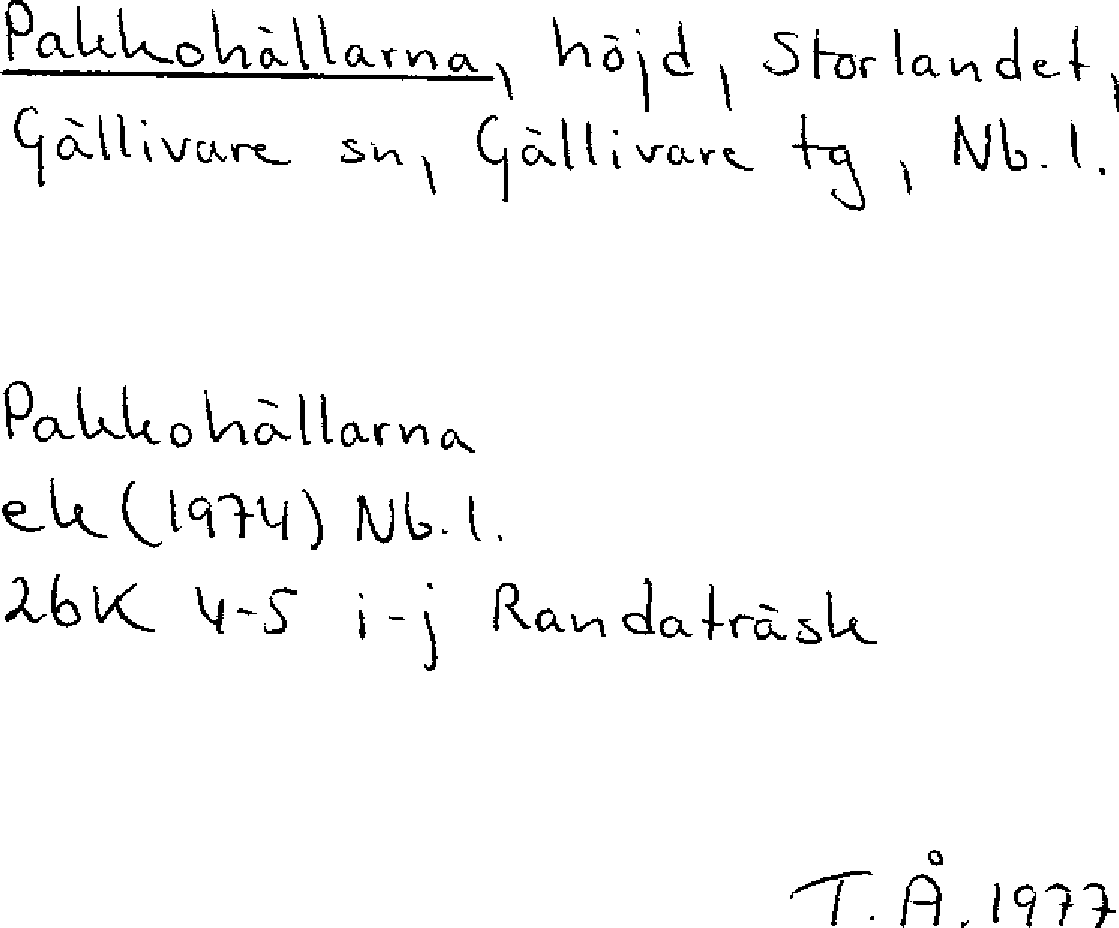 Pakkohällarna, höjd, Storlandet,
Gällivare sn, Gällivare tg, Nb. l.
Pakkohällarna
ek (1974) Nb. l.
26K 4-5 i-j Randaträsk
T. Å. 1977